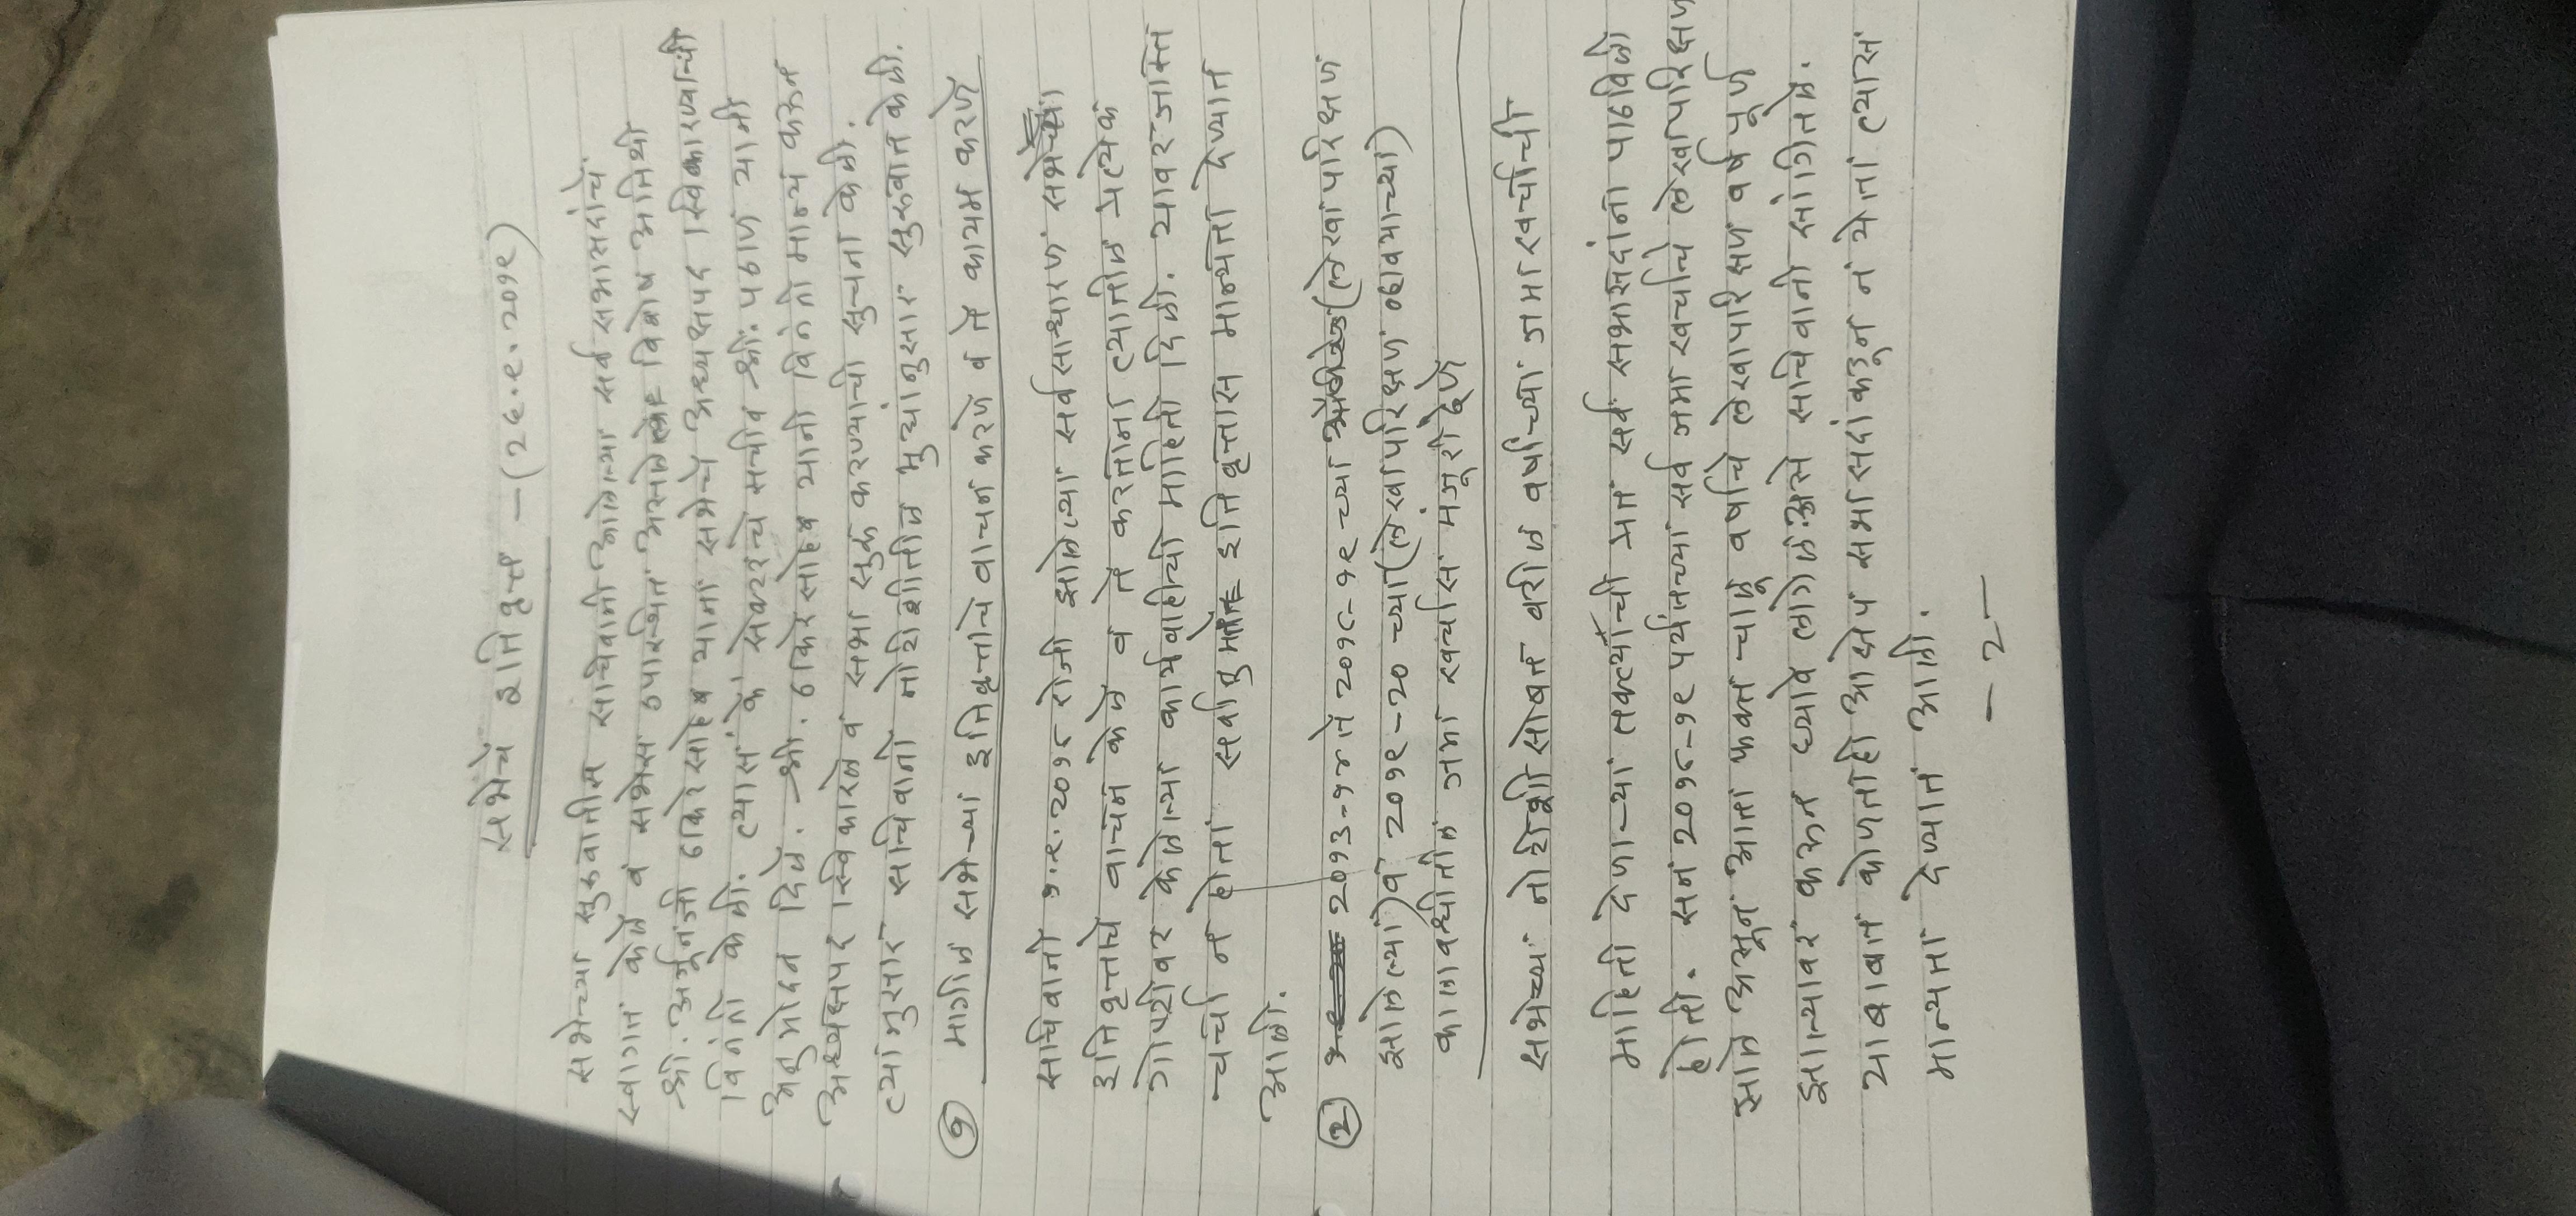 सभेचे इतिवृत्त – (२६.९.२०१९)
सभेच्या सुरुवातीस सचिवांनी आलेल्या सर्व सभासदांचे
स्वागत केले व सभेस उपास्थित असलेले विशेष अतिथी
श्री. अर्जूनजी ठाकरेसाहेब यांना सभेचे अध्यक्षपद स्विकारण्याची
विनंती केली. त्यास 'के' सेक्टरचे सचीव श्री. पठाण यांनी
अनुमोदन दिले. श्री. ठाकरेसाहेब यांनी विनंती मान्य करून
अध्यक्षपद स्विकारले व सभा सुरु करण्याची सुचना केली.
त्यांनुसार सचिवांनी नोटीशीतील मुद्यांनुसार सुरुवात केली.
① मागील सभेच्या इतिवृत्ताचे वाचन करणे व ते कायम करणे
सचिवांनी १.९.२०१८ रोजी झालेल्या सर्वसाधारण सभेच्या
इतिवृत्ताचे वाचन केले व ते करताना त्यातील प्रत्येक
गोष्टीवर केलेल्या कार्यवाहीची माहिती दिली. यावर जास्ति
चर्चा न होता सर्वानुमते इतिवृत्तास मान्यता देण्यात
आली.
② २०१३-१४ ते २०१८-१९ च्या (लेखापरिक्षण
झालेल्या) व २०१९-२० च्या (लेखापरिक्षण व्हावयाच्या)
कालावधीतील जमा खर्चास मंजूरी देणे
सभेच्या नोटीशीसोबत वरील वर्षाच्या जमा खर्चाची
माहिती देणाऱ्या तक्त्यांची प्रत सर्व सभासदांना पाठविली
होती. सन २०१८-१९ पर्यंतच्या सर्व जमा खर्चाचे लेखापरिक्षण
झाले असून आता फक्त चालू वर्षाचे लेखापरिक्षण वर्ष पूर्ण
झाल्यावर करून घ्यावे लागेल असे सचिवांनी सांगितले.
याबाबत कोणताही आक्षेप सभासदांकडून न येता त्यास
मान्यता देण्यात आली.
– २ –